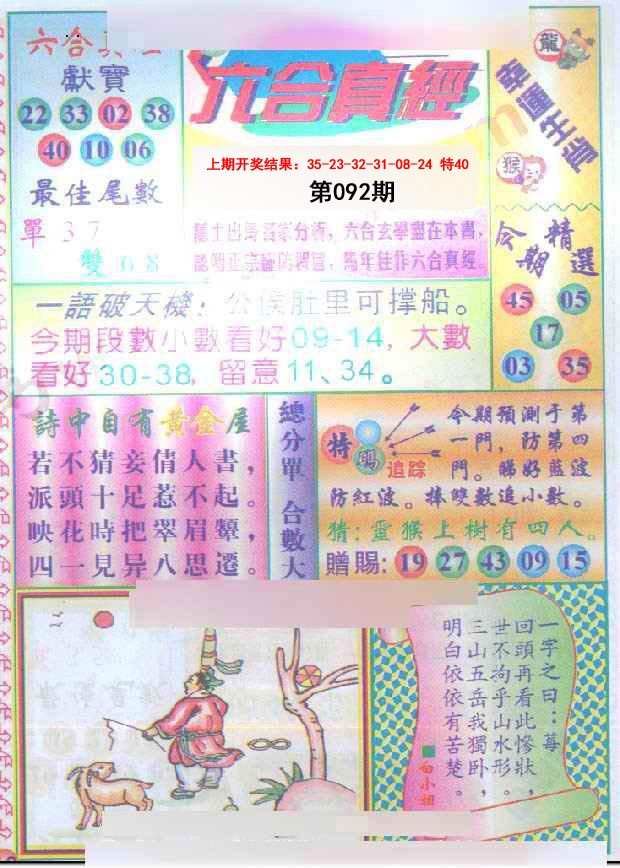 六合真經
獻寶
22 33 02 38
40 10 06
最佳尾數
單 3 7
雙 6 8
六合真經
上期开奖结果：35-23-32-31-08-24 特40
第092期
六合玄學盡在本書，
馬年佳作六合真經
龍
幸運生肖
猴
今期精選
45 05
17
03 35
一語破天機：公侯肚里可撑船。
今期段數小數看好09-14，大數
看好30-38，留意11、34。
詩中自有黃金屋
若不猜妾倩人書，
派頭十足惹不起。
映花時把翠眉顰，
四一見异八思遷。
總分單 合數大
特碼
追踪
今期預測于第
一門，防第四
門。睇好藍波
防紅波。捧雙數追小數。
猜：靈猴上樹有四人。
贈賜：19 27 43 09 15
一字之曰：莓
回頭再看此慘狀，
世不拘乎山水形。
三山五岳我獨卧，
明白依依有苦楚。
白小姐